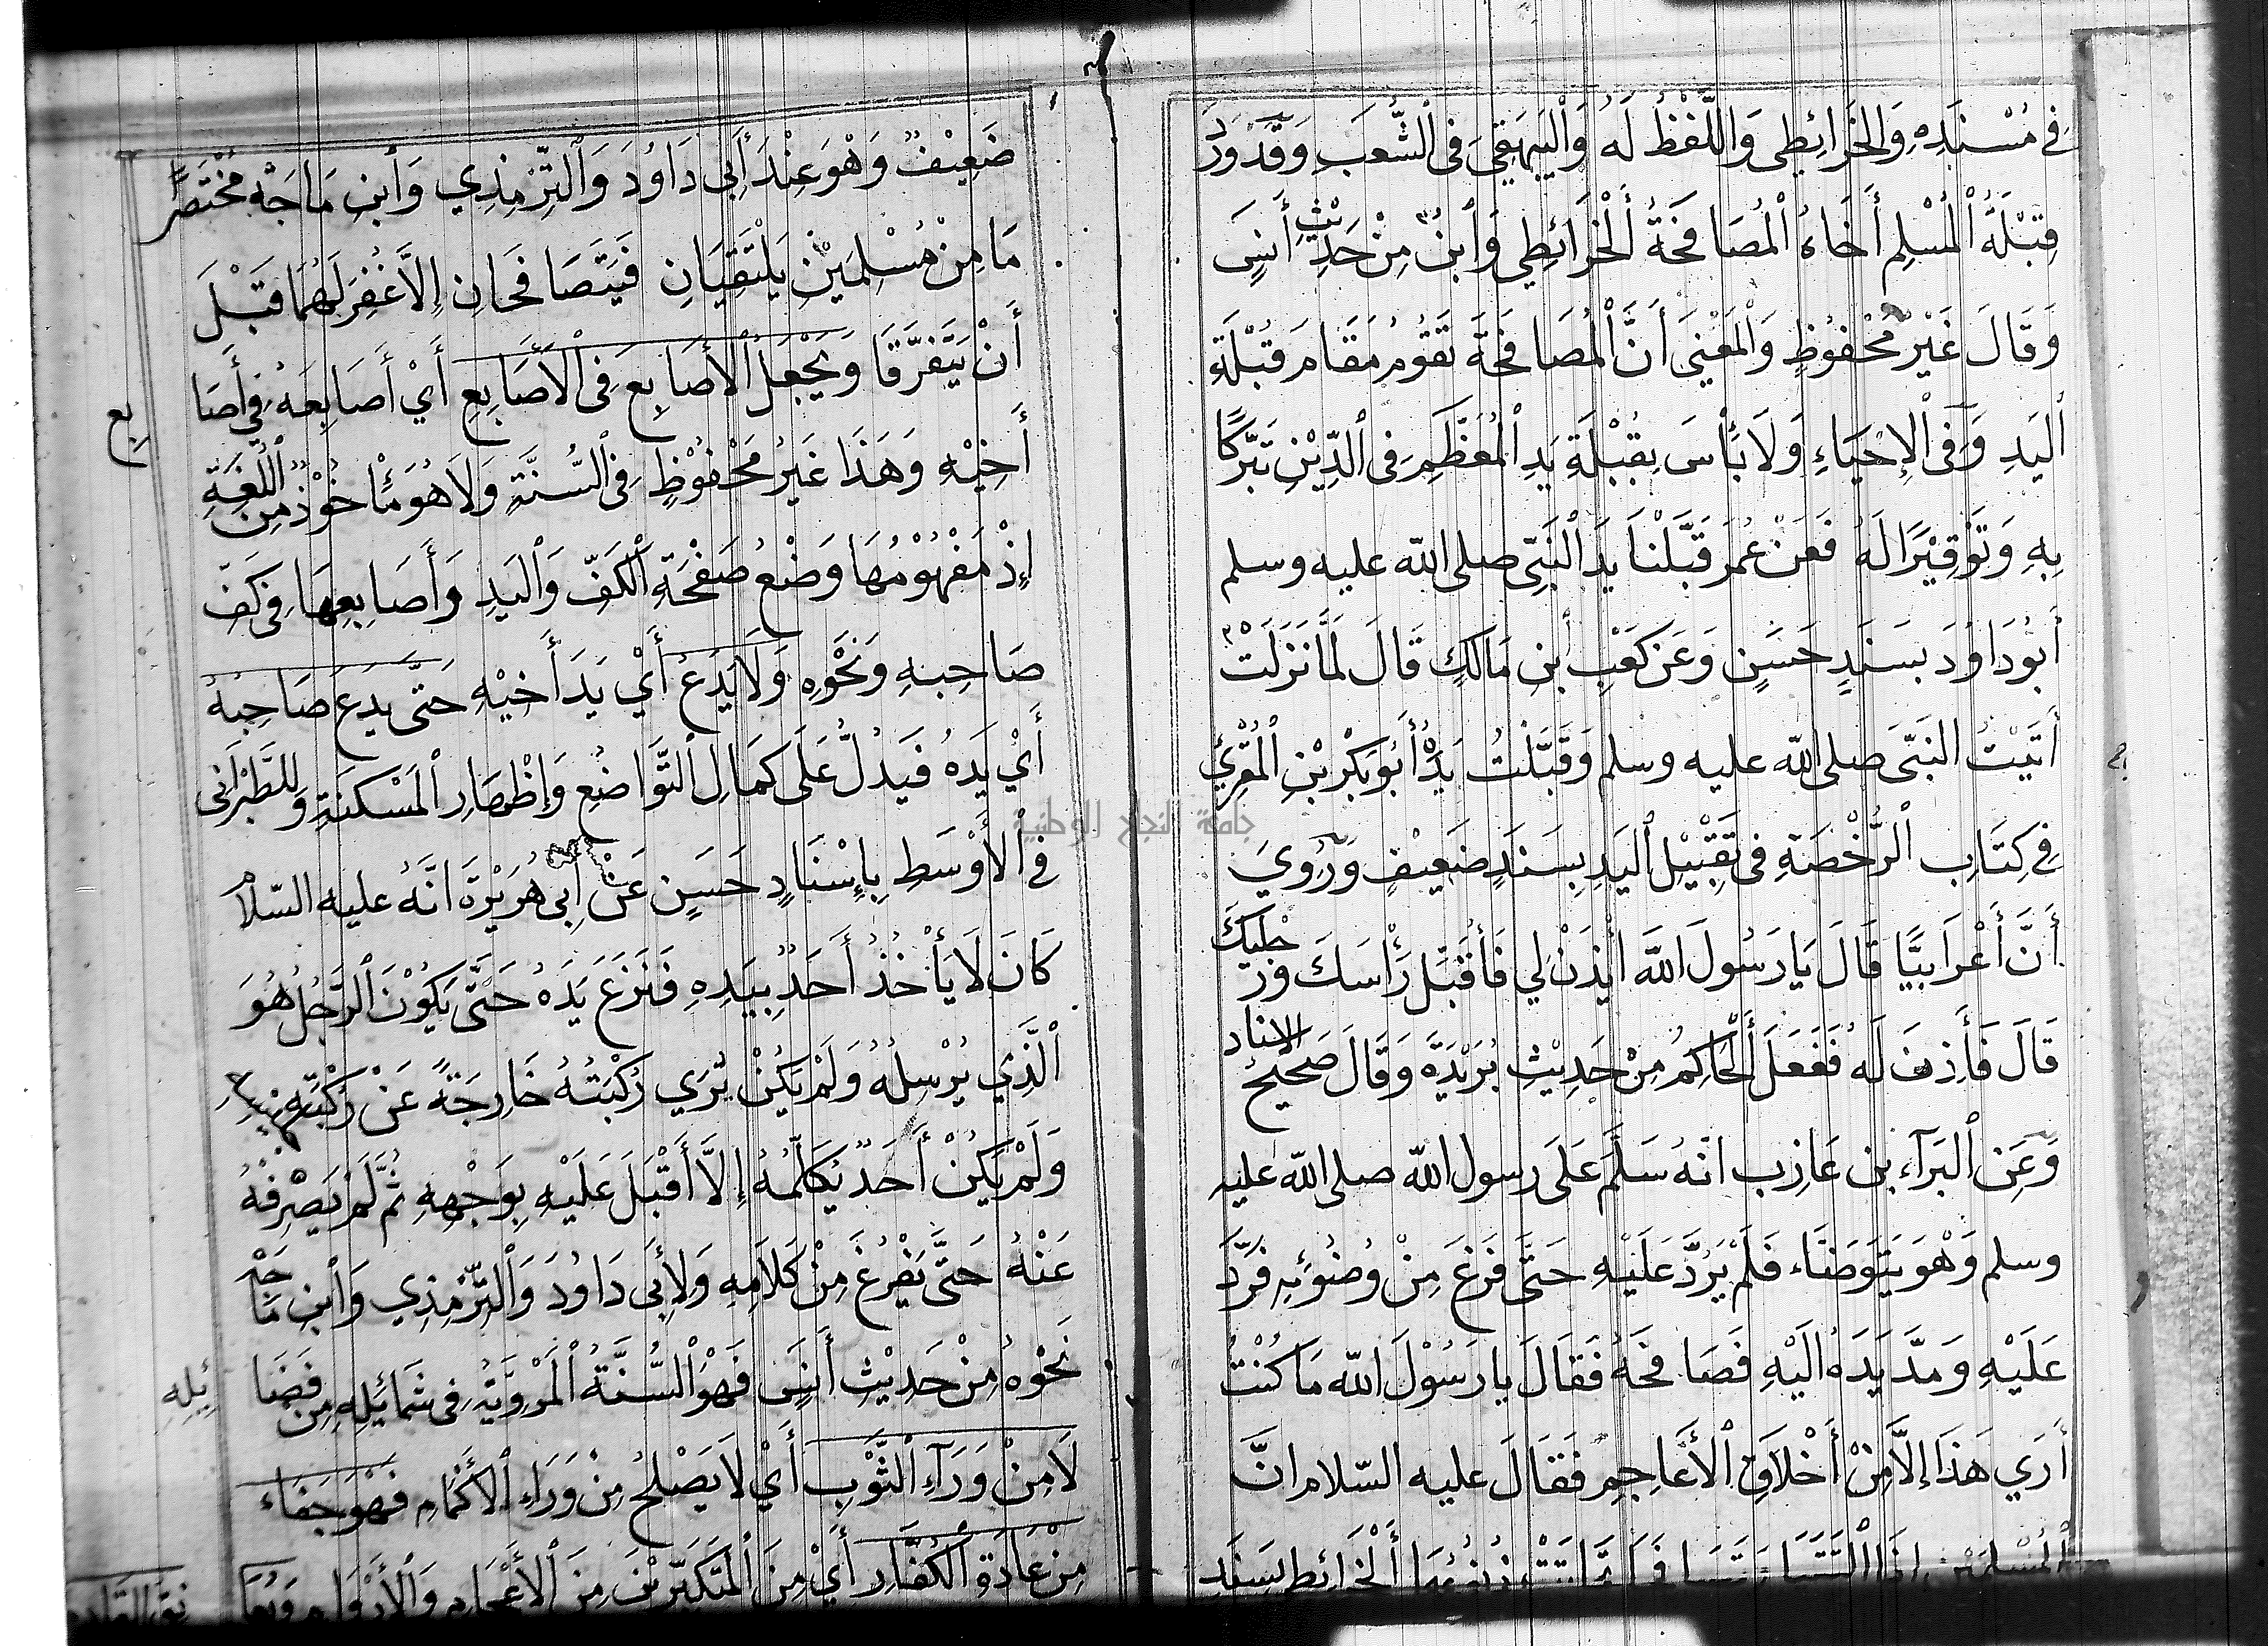 فِي مُسْنَدِهِ وَالخَرَائِطِى وَاللَّفْظُ لَهُ وَالْبَيهَقِيَ فِى الشُّعَبِ وَقَدْ وَرَدَ
قِبْلَةُ الْمُسْلِمِ أَخَاهُ الْمُصَافَحَةُ أَلْخَرَائِطِي وَابْنُ مِنْ حَدِيْثِ أَنَسٍ
وَقَالَ غَيْرُ مَحْفُوظٍ وَالْمَعْنِيَ أَنَّ الْمُصَافَحَةَ تَقُومُ مَقَامَ قُبْلَةِ
الْيَدِ وَفِى الْإِحْيَاءِ وَلَا بَأْسَ بِقُبْلَةِ يَدِ الْمُعَظَّمِ فِى الدِّيْنِ تَبَرُّكًا
بِهِ وَتَوْقِيْرًا لَهُ فَعَنْ عُمَرَ قَبَّلْنَا يَدَ النَّبِىِّ صلى الله عليه وسلم
أَبُو دَاوُدَ بِسَنَدٍ حَسَنٍ وَعَنْ كَعْبِ ابْنِ مَالِكٍ قَالَ لَمَّا نَزَلَتْ
أَتَيْتُ النَّبِىَّ صلى الله عليه وسلم وَقَبَّلْتُ يَدَهُ أَبُو بَكْرِ بْنِ الْمُقْرِئِ
فِي كِتَابِ الرُّخْصَةِ فِى تَقْبِيْلِ الْيَدِ بِسَنَدٍ ضَعِيْفٍ وَرُوِيَ
أَنَّ أَعْرَابِيًّا قَالَ يَا رَسُولَ اللهَ ائْذَنْ لِي فَأُقَبِّلَ رَأْسَكَ وَرِجْلَيْكَ
قَالَ فَأَذِنَ لَهُ فَفَعَلَ أَلْحَاكِمُ مِنْ حَدِيْثِ بُرَيْدَةَ وَقَالَ صَحِيْحُ الاسناد
وَعَنِ الْبَرَآءِ بْنِ عَازِب انَّهُ سَلَّمَ عَلَى رسول الله صلى الله عليه
وسلم وَهْوَ يَتَوَضَّاء فَلَمْ يَرُدَّ عَلَيْهِ حَتَّى فَرَغَ مِنْ وُضُوئِهِ فَرَدَّ
عَلَيْهِ وَمَدَّ يَدَهُ الَيْهِ فَصَافَحَهُ فَقَالَ يَا رَسُوْلَ اللهِ مَا كُنْتُ
أَرَي هَذَا إِلَّا مِنْ أَخْلَاقِ الْأَعَاجِمِ فَقَالَ عليه السّلام انَّ
الْمُسْلِمَيْنِ إِذَا الْتَقَيَا فَتَصَافَحَا تَحَاتَّتْ ذُنُوْبُهُمَا أَلْخَرَائِطِى بِسَنَدٍ
ضَعِيْفٍ وَهْوَ عِنْدَ أَبِى دَاوُدَ وَالتِّرْمِذِي وَابْنِ مَاجَهْ مُخْتَصَرًا
مَا مِنْ مُسْلِمَيْنِ يَلْتَقِيَانِ فَيَتَصَافَحَانِ إِلَّا غُفِرَ لَهُمَا قَبْلَ
أَنْ يَتَفَرَّقَا وَيَجْعَلُ الْأَصَابِعَ فِى الْأَصَابِعِ أَيْ أَصَابِعَهُ فِي أَصَا بِع
أَخِيْهِ وَهَذَا غَيْرُ مَحْفُوْظٍ فِى السُّنَّةِ وَلَا هُوَ مَأْخُوْذٌ مِنَ اللُّغَةِ
إِذْ مَفْهُوْمُهَا وَضْعُ صَفْحَةِ الْكَفِّ وَالْيَدِ وَأَصَابِعِهَا فِى كَفِّ
صَاحِبِهِ وَنَحْوِهِ وَلَا يَدَعُ أَيْ يَدَ أَخِيْهِ حَتَّى يَدَعَ صَاحِبُهُ
أَيْ يَدَهُ فَيَدُلُّ عَلَى كَمَالِ التَّوَاضُعِ وَإِظْهَارِ الْمَسْكَنَةِ وَلِلطَّبْرَانِى
فِى الْأَوْسَطِ بِإِسْنَادٍ حَسَنٍ عَنْ ابِى هُرَيْرَةَ انَّهُ عليه السّلام
كَانَ لَا يَأْخُذُ أَحَدٌ بِيَدِهِ فَنَزَعَ يَدَهُ حَتَّى يَكُوْنَ الرَّجُلُ هُوَ
الَّذِي يُرْسِلُهُ وَلَمْ يَكُنْ يُرَي رُكْبَتُهُ خَارِجَةً عَنْ رُكْبَةِ
وَلَمْ يَكُنْ أَحَدٌ يُكَلِّمُهُ إِلَّا أَقْبَلَ عَلَيْهِ بِوَجْهِهِ ثُمَّ لَمْ يَصْرِفْهُ
عَنْهُ حَتَّى يَفْرُغَ مِنْ كَلَامِهِ وَلِأَبِى دَاوُدَ وَالتِّرْمِذِي وَابْنِ مَاجَهْ
نَحْوُهُ مِنْ حَدِيْثِ أَنَسٍ فَهْوَ السُّنَّةُ الْمَرْوِيَّةُ فِى شَمَائِلِهِ مِنْ فَضَا ئِلِهِ
لَا مِنْ وَرَآءِ الثَّوْبِ أَيْ لَا يَصْلَحُ مِنْ وَرَاءِ الْأَكْمَامِ فَهْوَ جَفَاء
مِنْ عَادَةِ الْكُفَّارِ أَيْ مِنَ الْمُتَكَبِّرِيْنَ مِنَ الْأَعْجَامِ وَالْأَرْوَامِ
جامعة النجاح الوطنية